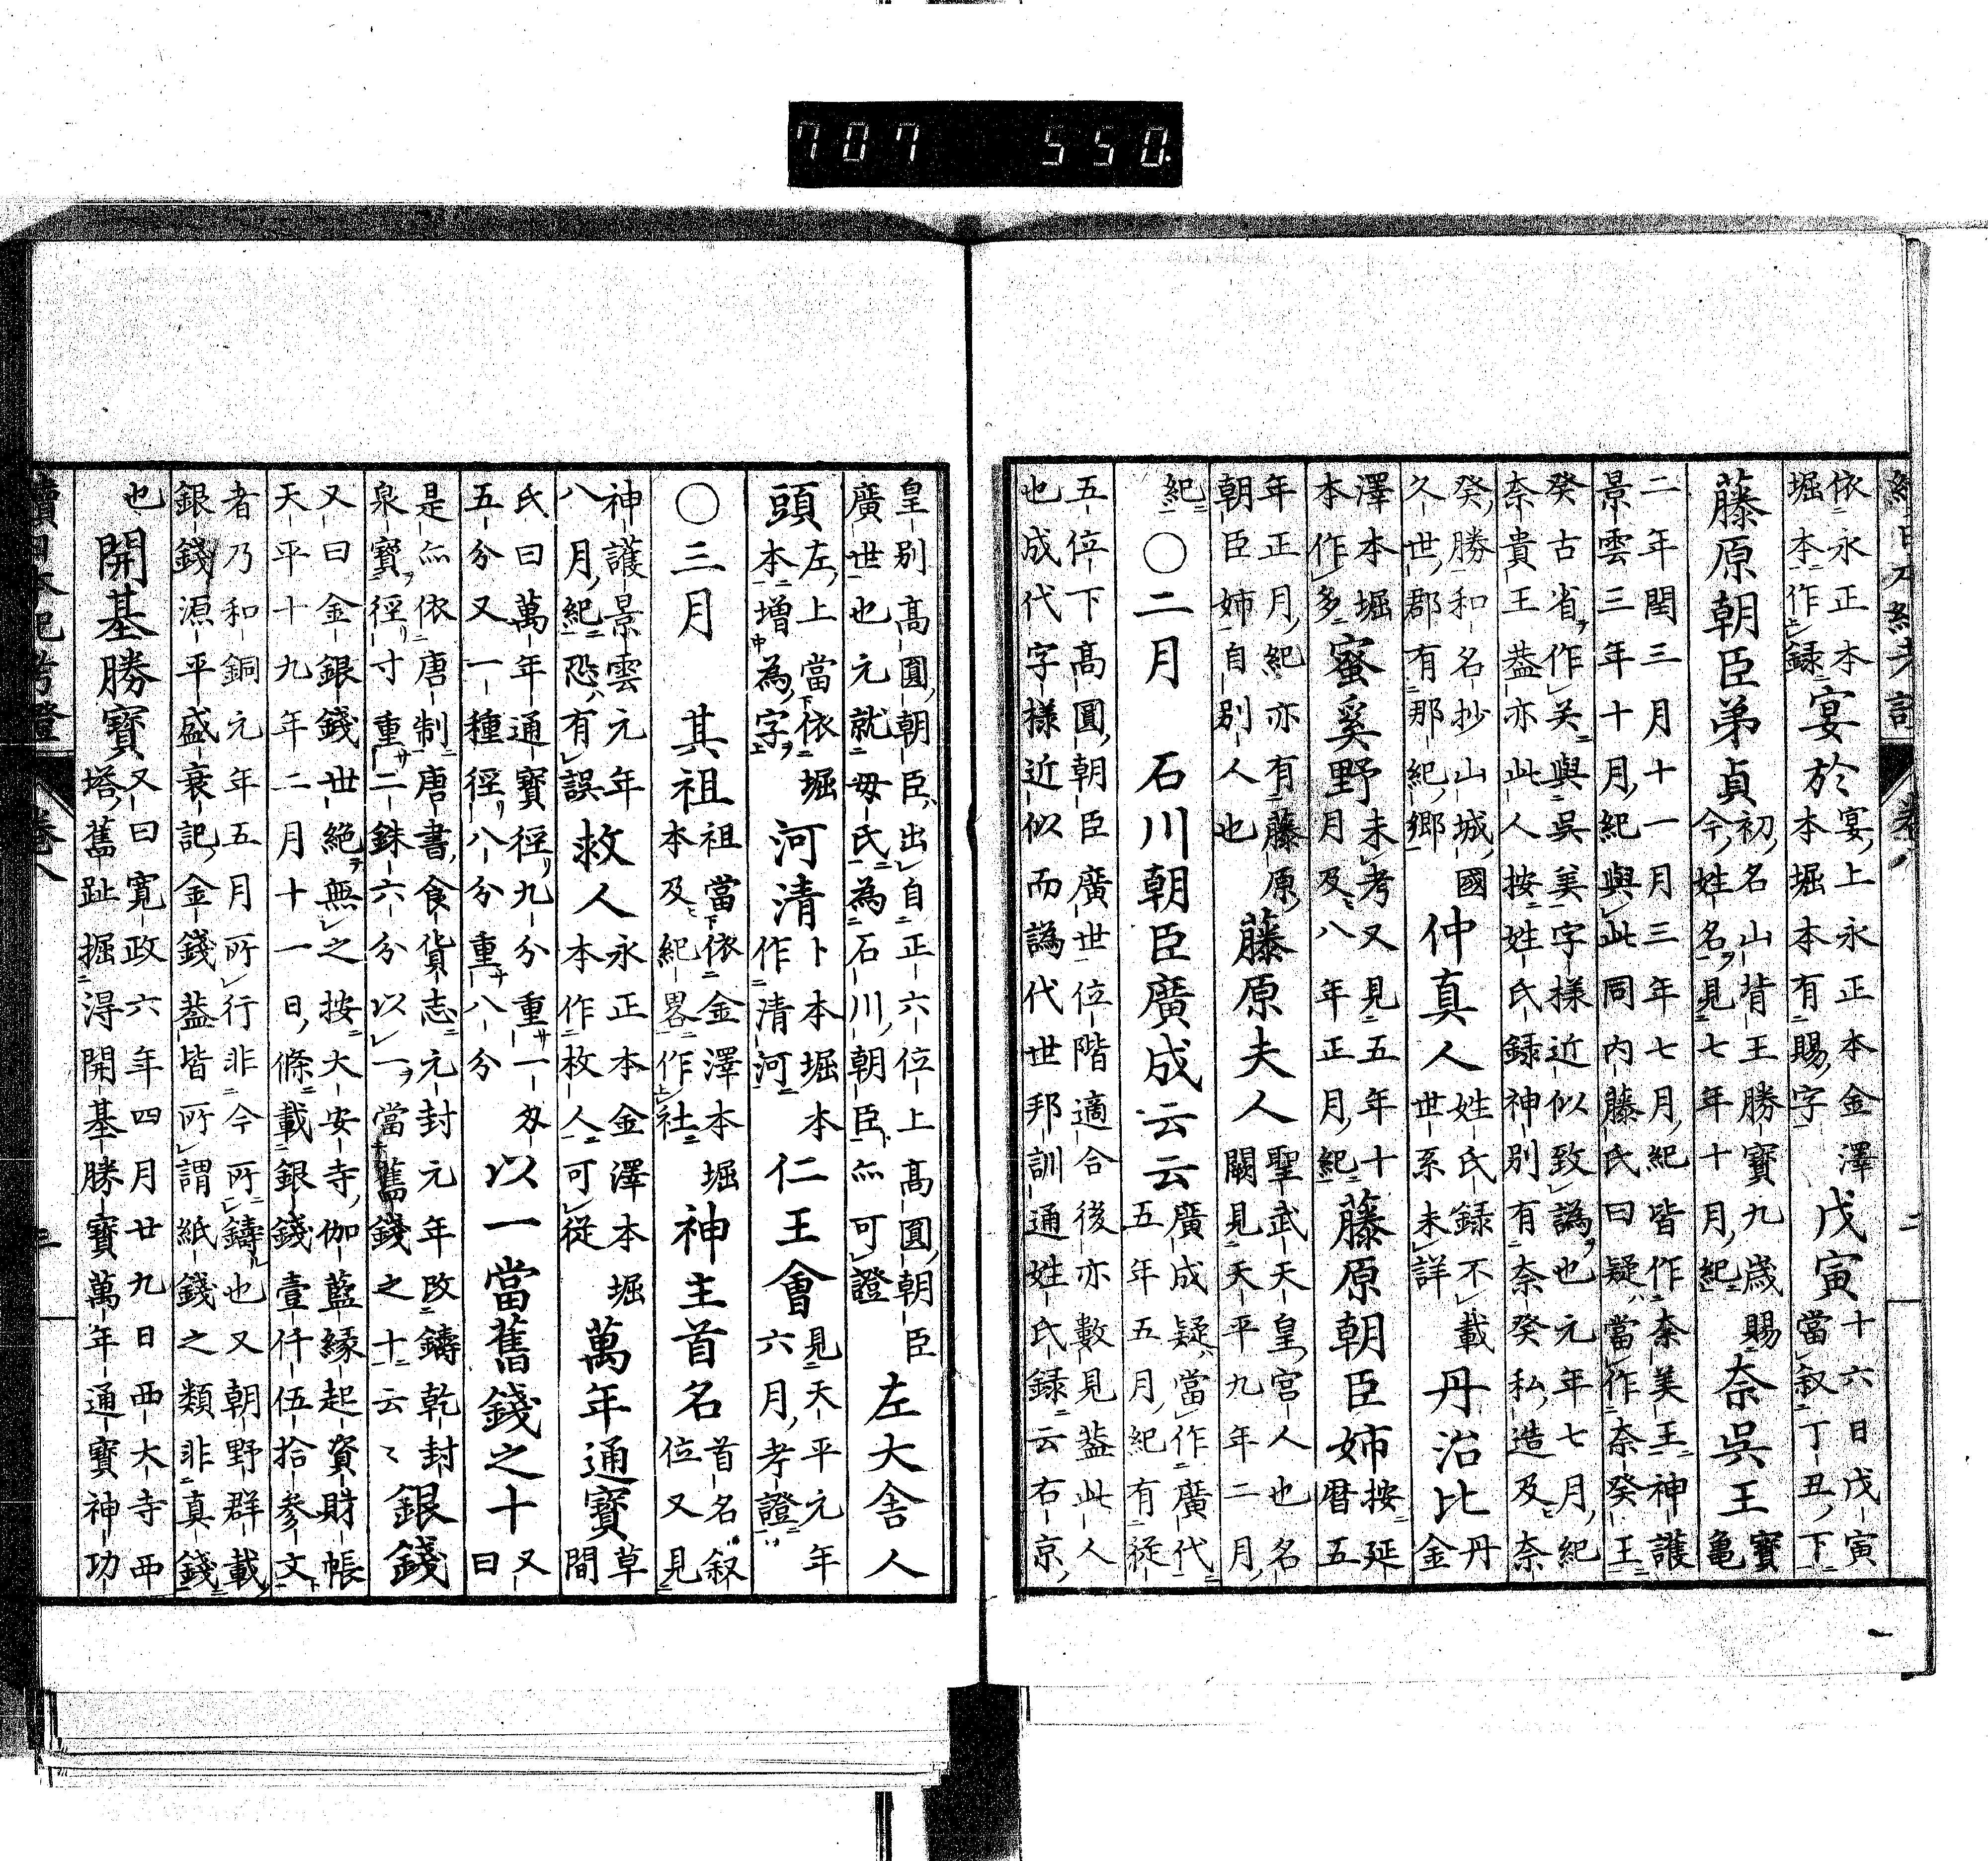 707 550.
依永正本堀本作録宴於宴上永正本金澤本堀本有賜字戊寅十六日戊寅當叙丁丑下
藤原朝臣弟貞初名山背王勝寶九歲賜今姓名見七年十月紀奈呉王寶龜
二年閏三月十一月三年七月紀皆作奈美王神護景雲三年十月紀與此同内藤氏曰疑當作奈癸王
癸古省作关與呉美字様近似致譌也元年七月紀奈貴王葢亦此人按姓氏録神別有奈癸私造及奈
癸勝和名抄山城國久世郡有那紀郷仲真人姓氏録不載世系未詳丹治比丹金
澤本堀本作多蜜奚野未考又見五年十月及八年正月紀藤原朝臣姉按延暦五
年正月紀亦有藤原朝臣姉自別人也藤原夫人聖武天皇宮人也名闕見天平九年二月
紀〇二月 石川朝臣廣成云云廣成疑當作廣代五年五月紀有從
五位下高圓朝臣廣世位階適合後亦數見葢此人也成代字様近似而譌代世邦訓通姓氏録云右京
皇別高圓朝臣出自正六位上高圓朝臣廣世也元就母氏為石川朝臣亦可證左大舎人
頭左上當依堀本增為字河清卜本堀本作清河仁王會見天平元年六月考證
〇三月 其祖祖當依金澤本堀本及紀畧作社神主首名首名叙位又見
神護景雲元年八月紀恐有誤救人永正本金澤本堀本作枚人可從萬年通寶草間
氏曰萬年通寶徑九分重一匁五分又一種徑八分重八分以一當舊錢之十又曰
是亦依唐制唐書食貨志元封元年改鑄乾封泉寶徑寸重二銖六分以一當舊錢之十云々銀錢
又曰金銀錢世絶無之按大安寺伽藍縁起資財帳天平十九年二月十一日條載銀錢壹仟伍拾參文
者乃和銅元年五月所行非今所鑄也又朝野群載銀錢源平盛衰記金錢葢皆所謂紙錢之類非真錢
也開基勝寶又曰寛政六年四月廿九日西大寺西塔舊趾掘得開基勝寶萬年通寶神功
續日本紀考證 卷八 三